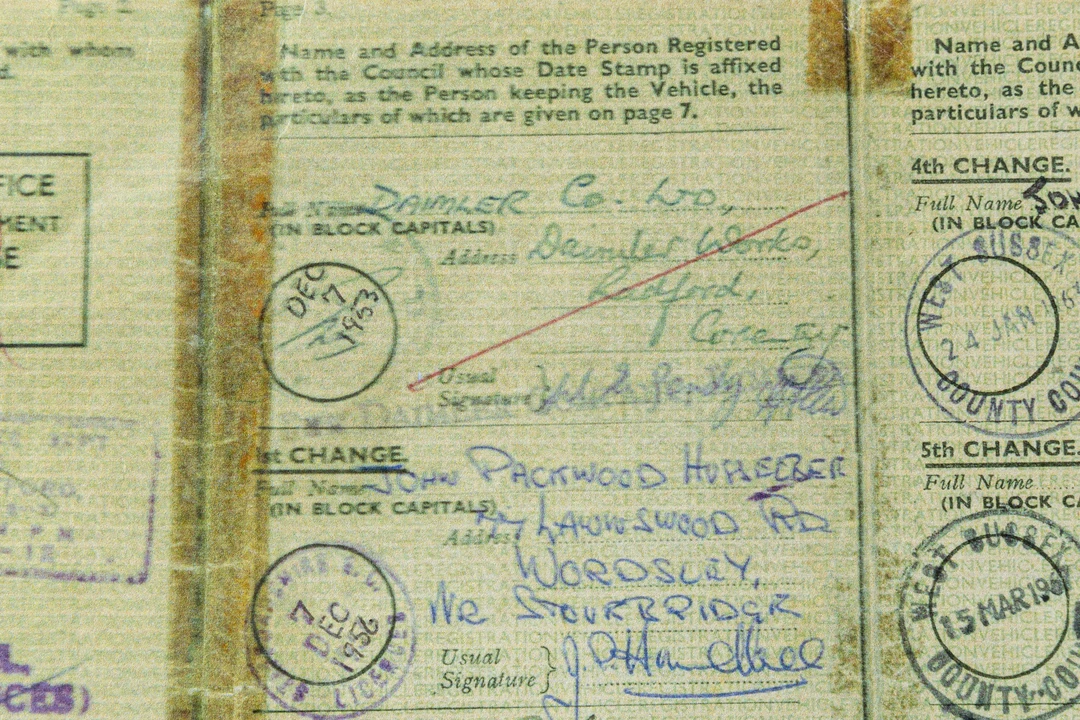 Page 2.
with whom
FICE
MENT
E
CES)
Page 3.
Name and Address of the Person Registered
with the Council whose Date Stamp is affixed
hereto, as the Person keeping the Vehicle, the
particulars of which are given on page 7.
Full Name DAIMLER Co. LTD.,
(IN BLOCK CAPITALS)
Address Daimler Works,
Radford,
Coventry
DEC
7
1953
Usual
Signature
1st CHANGE.
Full Name JOHN PACKWOOD
(IN BLOCK CAPITALS)
Address LAWNSWOOD RD
WORDSLEY,
NR STOURBRIDGE
7
DEC
1956
Usual
Signature
Name and A
with the Counc
hereto, as the
particulars of w
4th CHANGE.
Full Name
(IN BLOCK CA
WEST SUSSEX
24 JAN
COUNTY COU
5th CHANGE.
Full Name
(IN BLOCK CA
WEST SUSSEX
15 MAR 196
COUNTY COU